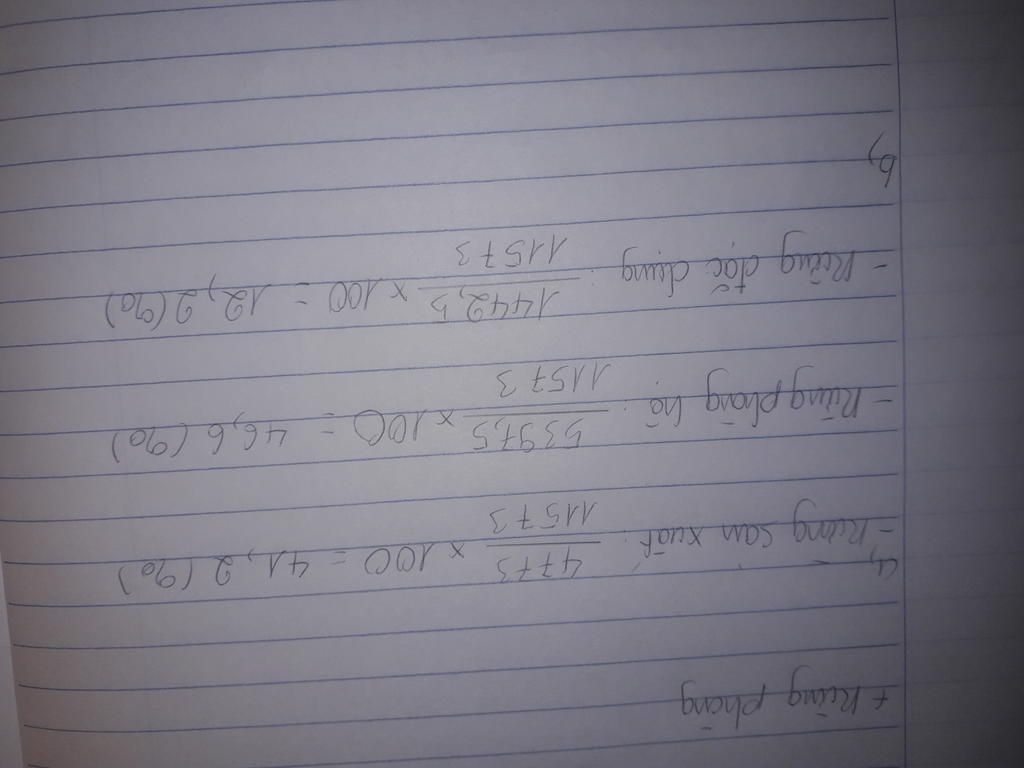 + Rừng phòng
a, - Rừng sản xuất: 4773/11573 × 100 = 41,2 (%)
- Rừng phòng hộ: 5397,5/11573 × 100 = 46,6 (%)
- Rừng đặc dụng: 1442,5/11573 × 100 = 12,2 (%)
b,